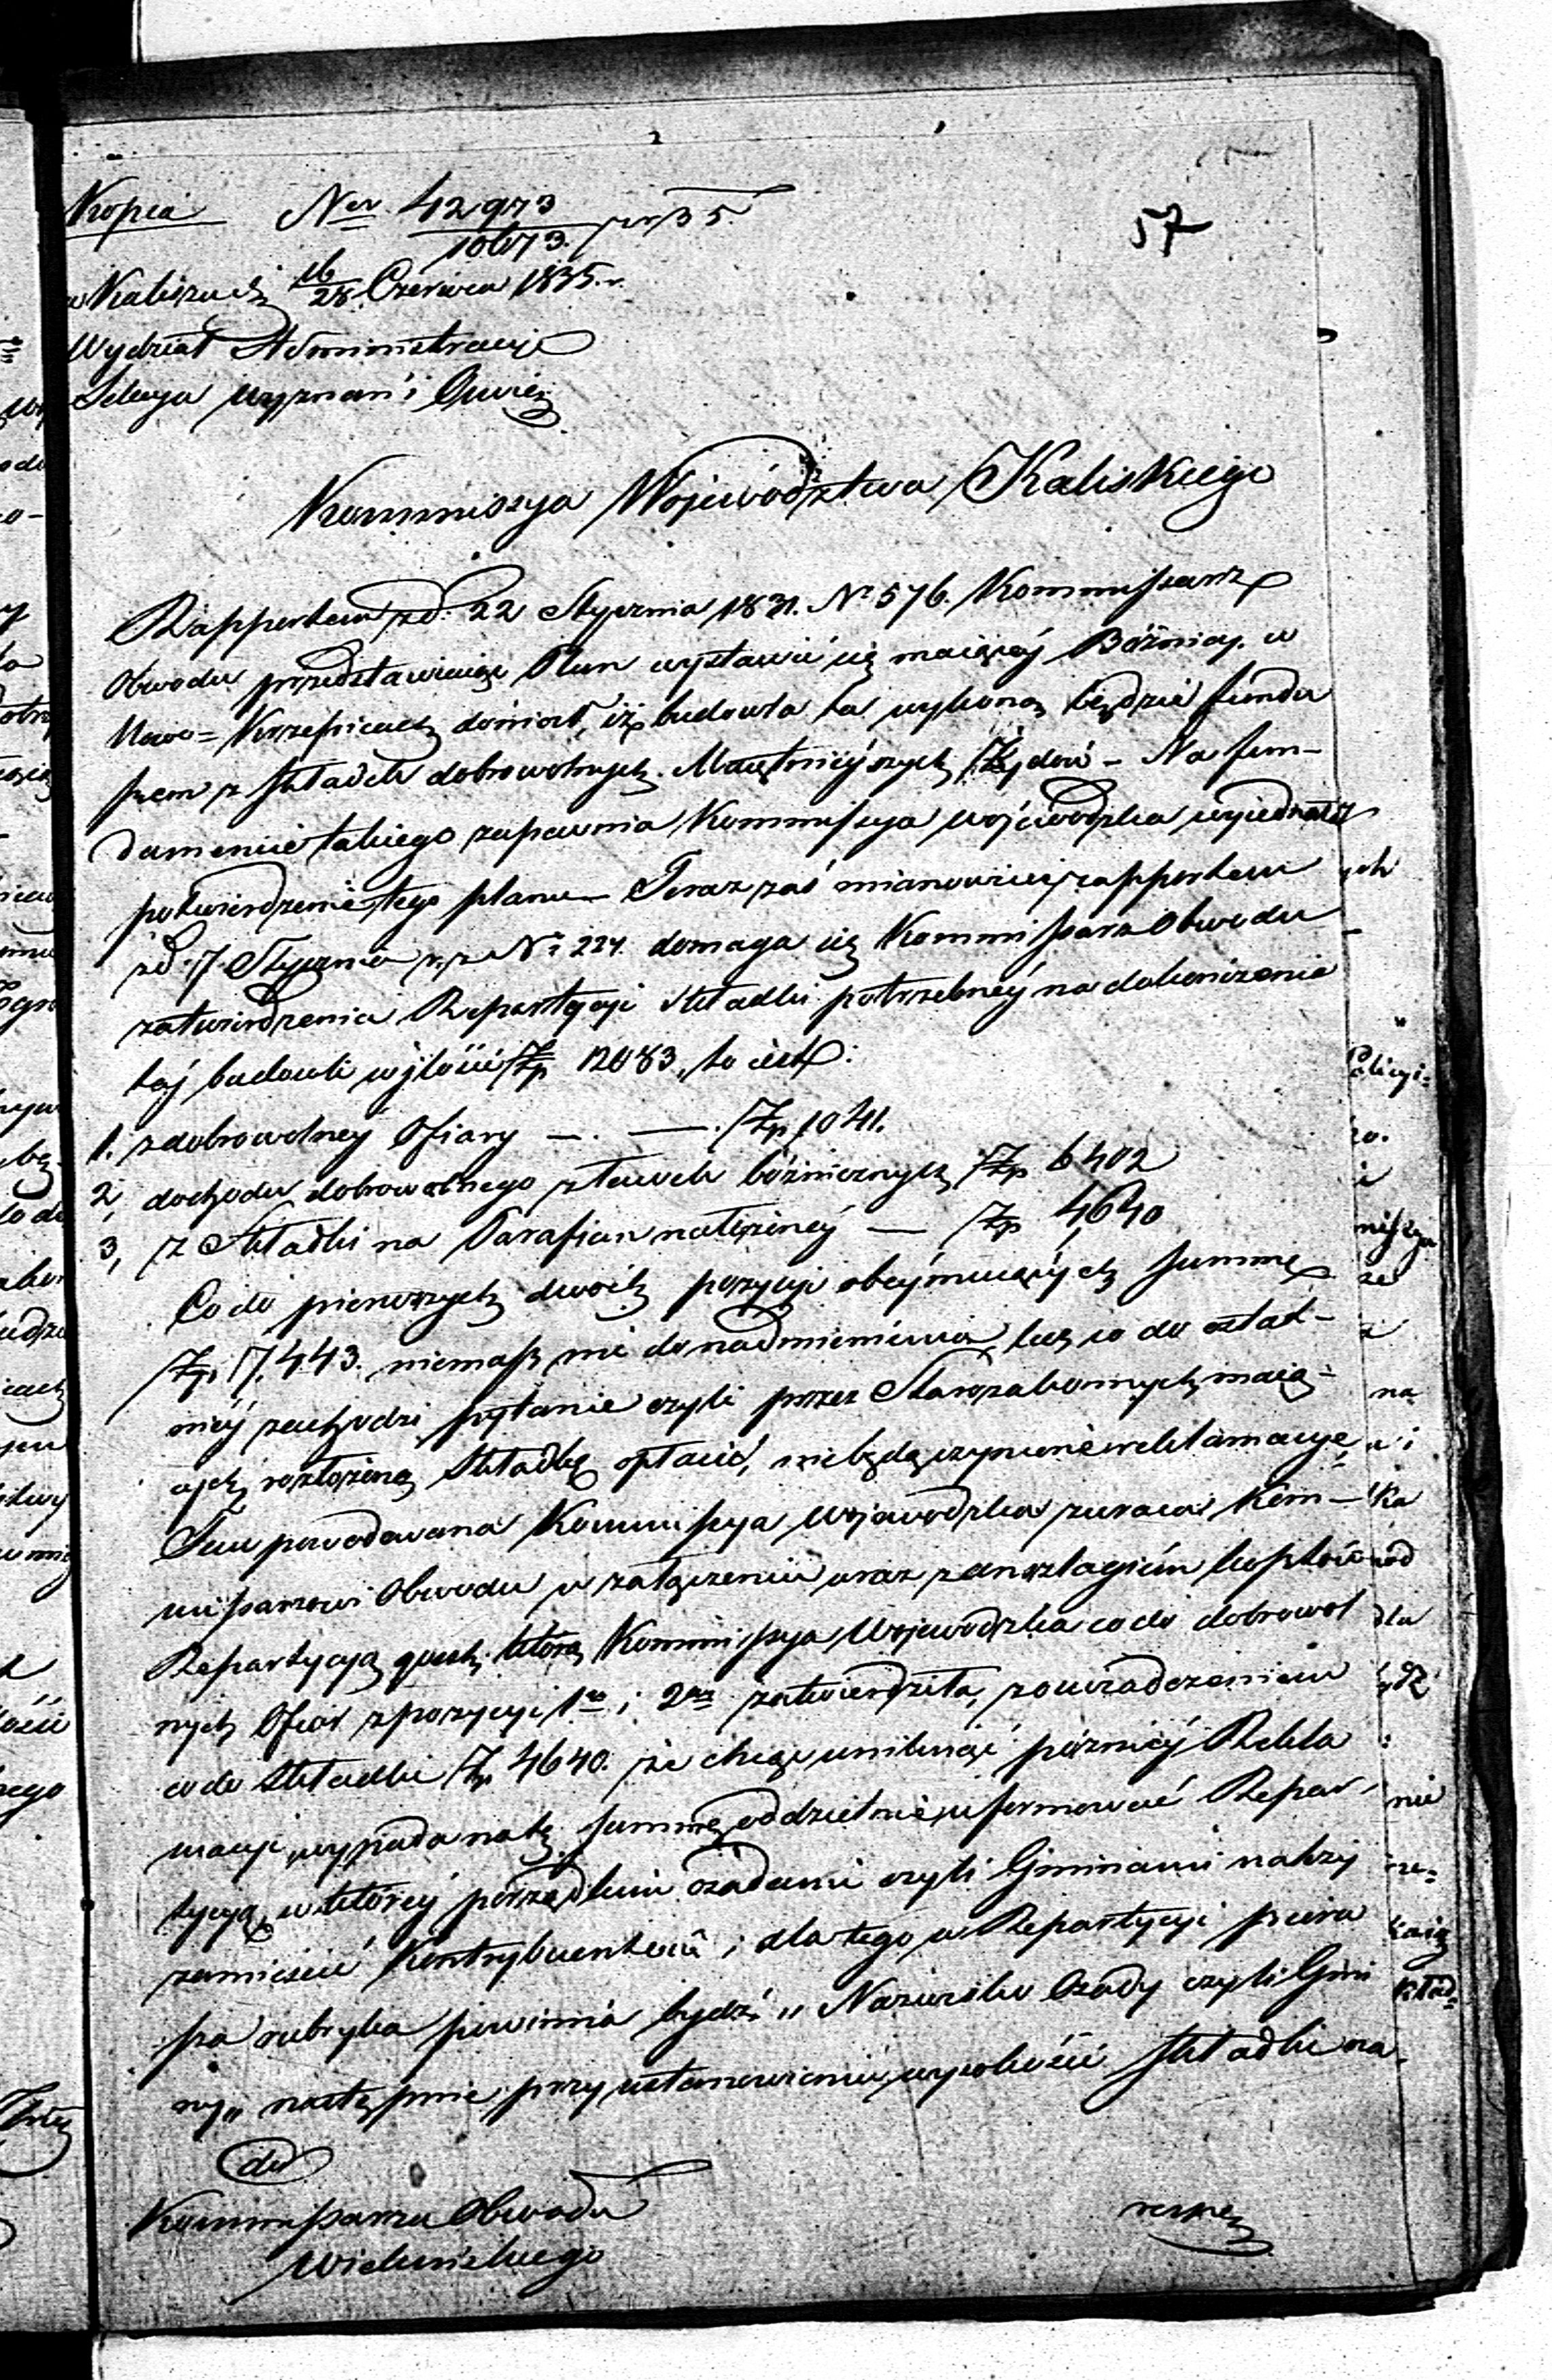 57
Kopia Ner 42973/10673. pr 35.
w Kaliszu d. 16/28 Czerwca 1835. r.
Wydział Administracyi
Sekcya Wyznań i Oświe.
Kommissya Województwa Kaliskiego
Rapportem z d. 22 Stycznia 1831. No 576. Kommissarz
Obwodu przedstawiając Plan wystawić się maiącéy Bóżnicy w
Nowo = Krzepicach doniosł, iż budowla ta wykoną będzie fundu
szem z składek dobrowolnych Maiętnieyszych Żydów – Na fun-
damencie takiego zapewnia Kommissya wojewódzka wyiednała
potwierdzenie tego planu – Teraz zaś mianowicie rapportem
z d. 7 Stycznia r. z No 224. domaga się Kommissarz Obwodu
zatwierdzenia Repartycyi składki potrzebnéy na dokończenie
téj budowli w ilości Zp 12083, to iest:
1. z dobrowolnéy Ofiary — . — . Zp 1041.
2, dochodu dobrowolnego z ławek bóżnicznych Zp 6402
3, z Składki na Parafian nałożonéy — Zp 4,640
Co do pierwszych dwóch pozycyi obeymuiących summę
Zp 7,443. niemasz nic do nadmienienia, lecz co do ostat-
niéy zachodzi pytanie czyli przez Starozakonnych maią-
cych rozłożoną Składkę opłacić, niebędą czynione reklamacye
Tem powodowana Kommissya Wojewódzka zwraca Kom-
missarzowi Obwodu w załączeniu wraz z anszlagiem kosztów
Repartycyą quest. którą Kommissya Wojewódzka co do dobrowol
nych Ofiar z pozycyi 1o i 2o zatwierdziła, z oświadczeniem
co do Składki Zp 4640. że chcąc uniknąć późniéy Rekla
macyi wypada na tę summę oddzielnie uformować Repar-
tycyą, w któréy porządkiem osadami czyli Gminami należy
zamieścić Kontrybuentów i dla tego w Repartycyi pierw
sza rubryka powinna bydź „ Nazwisko Osady czyli Gmi
ny „ następnie przy ustanowieniu wysokości składki na
do
Kommissarza Obwodu
Wieluńskiego